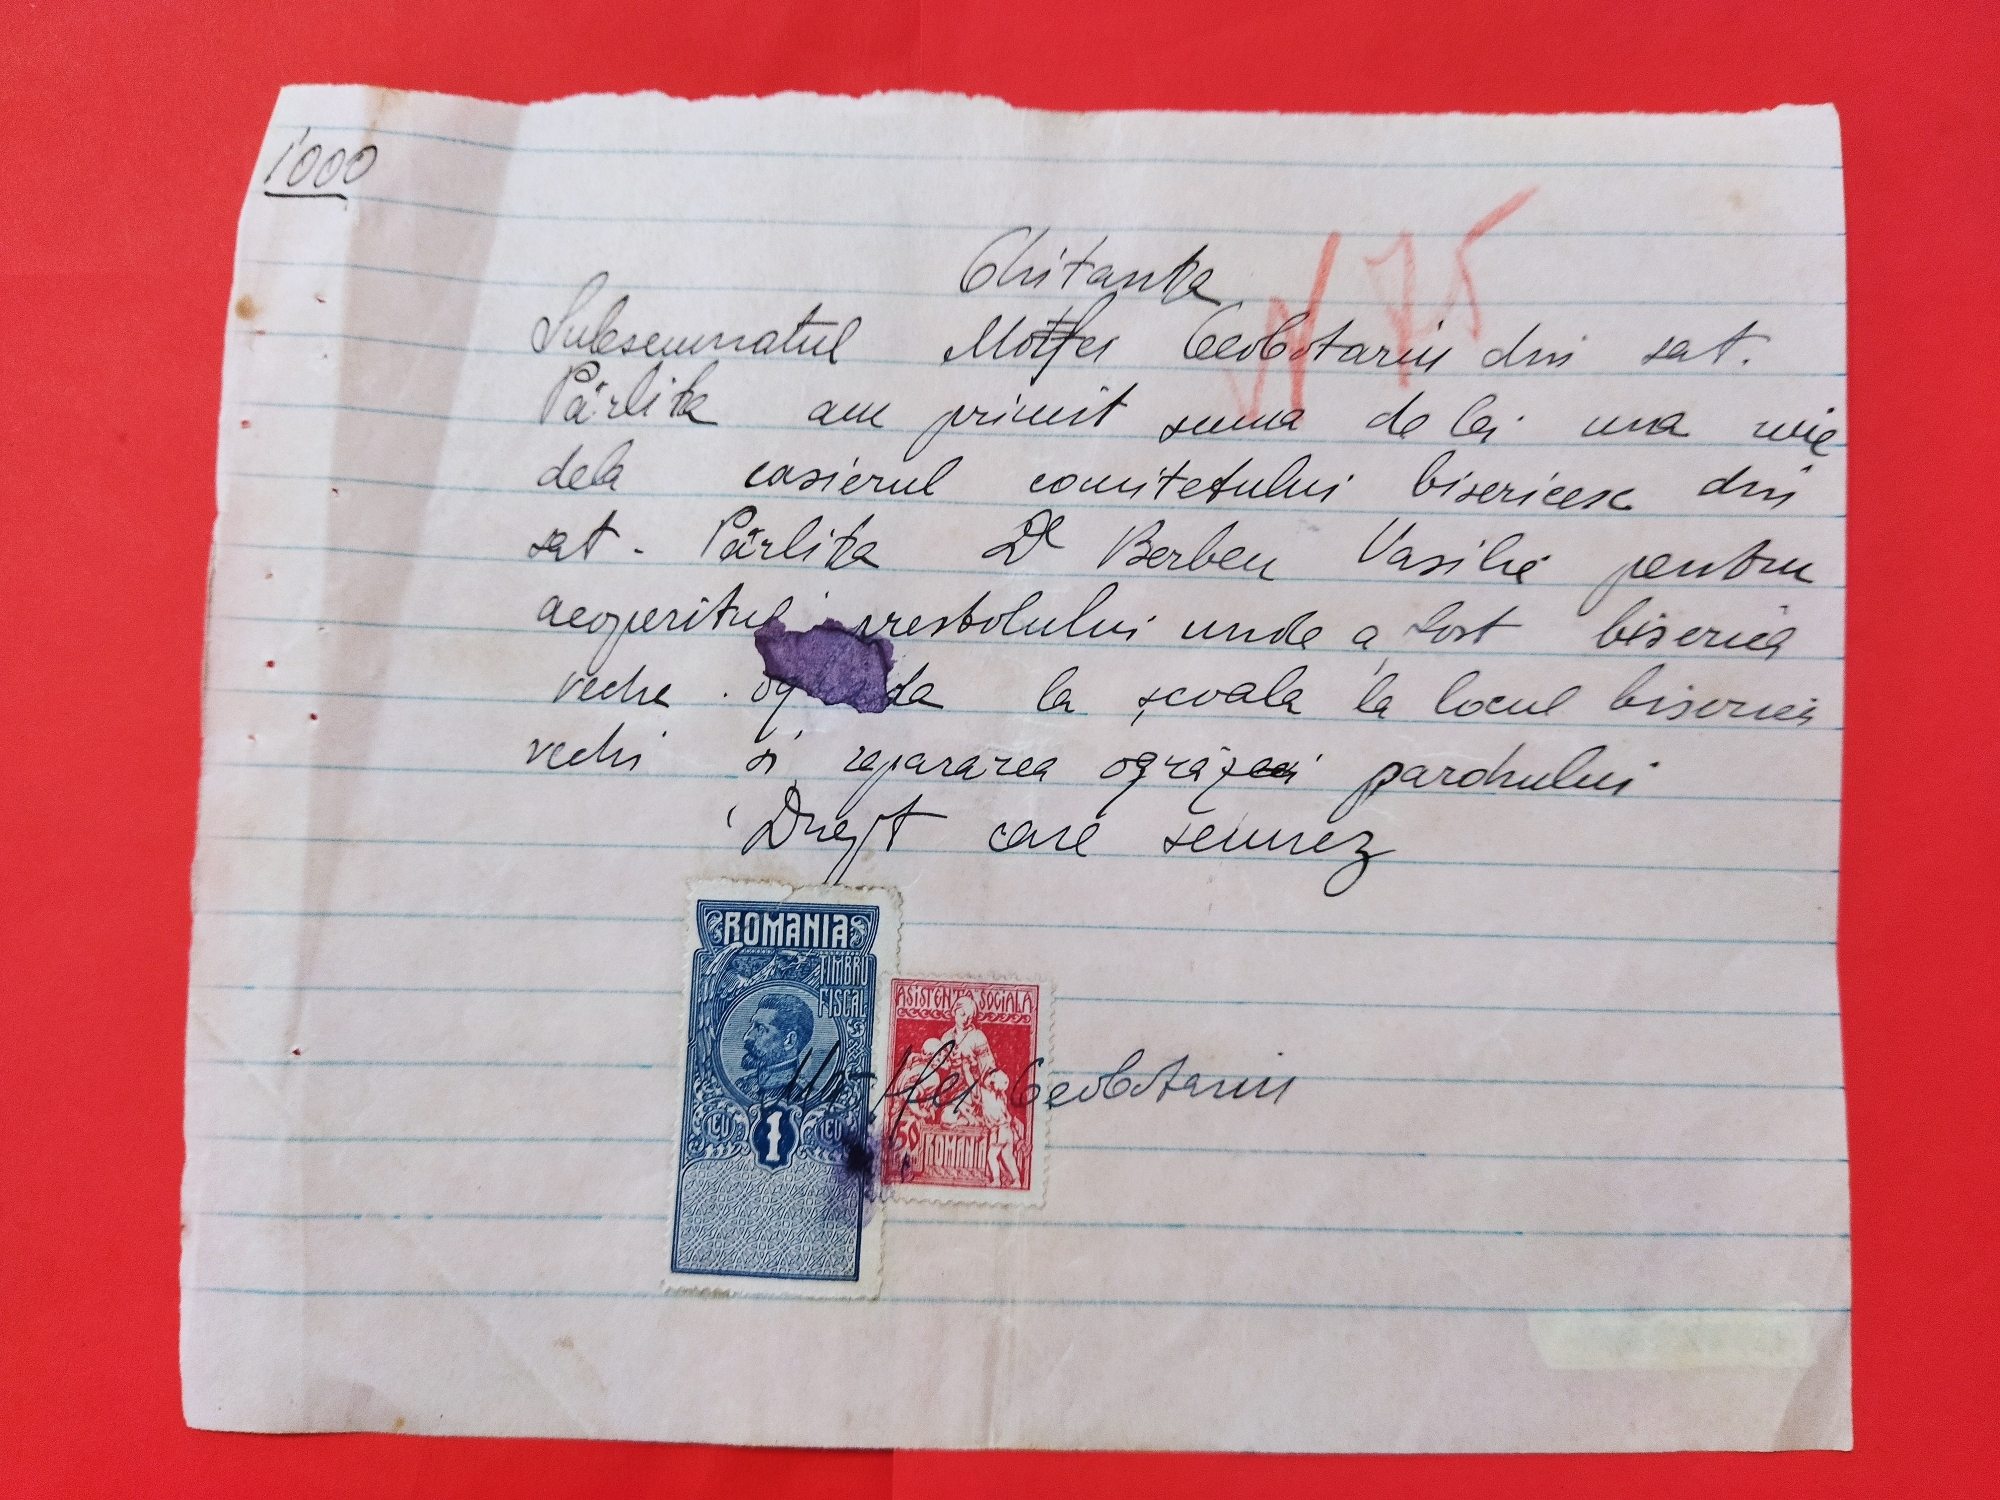 1000
N 75
Chitanța
Subsemnatul Motfei Ceobotariu din sat.
Pârlița am primit suma de lei una mie
dela casierul comitetului bisericesc din
sat. Pârlița Dl Berbeu Vasilie pentru
acoperitul prestolului unde a fost biserica
veche la școala la locul bisericii
vechi si repararea ogrăzei parohului
Drept care semnez
ROMANIA
TIMBRU
FISCAL
LEU 1 LEU
ASISTENȚA SOCIALA
50
ROMANIA
Motfei Ceobotariu